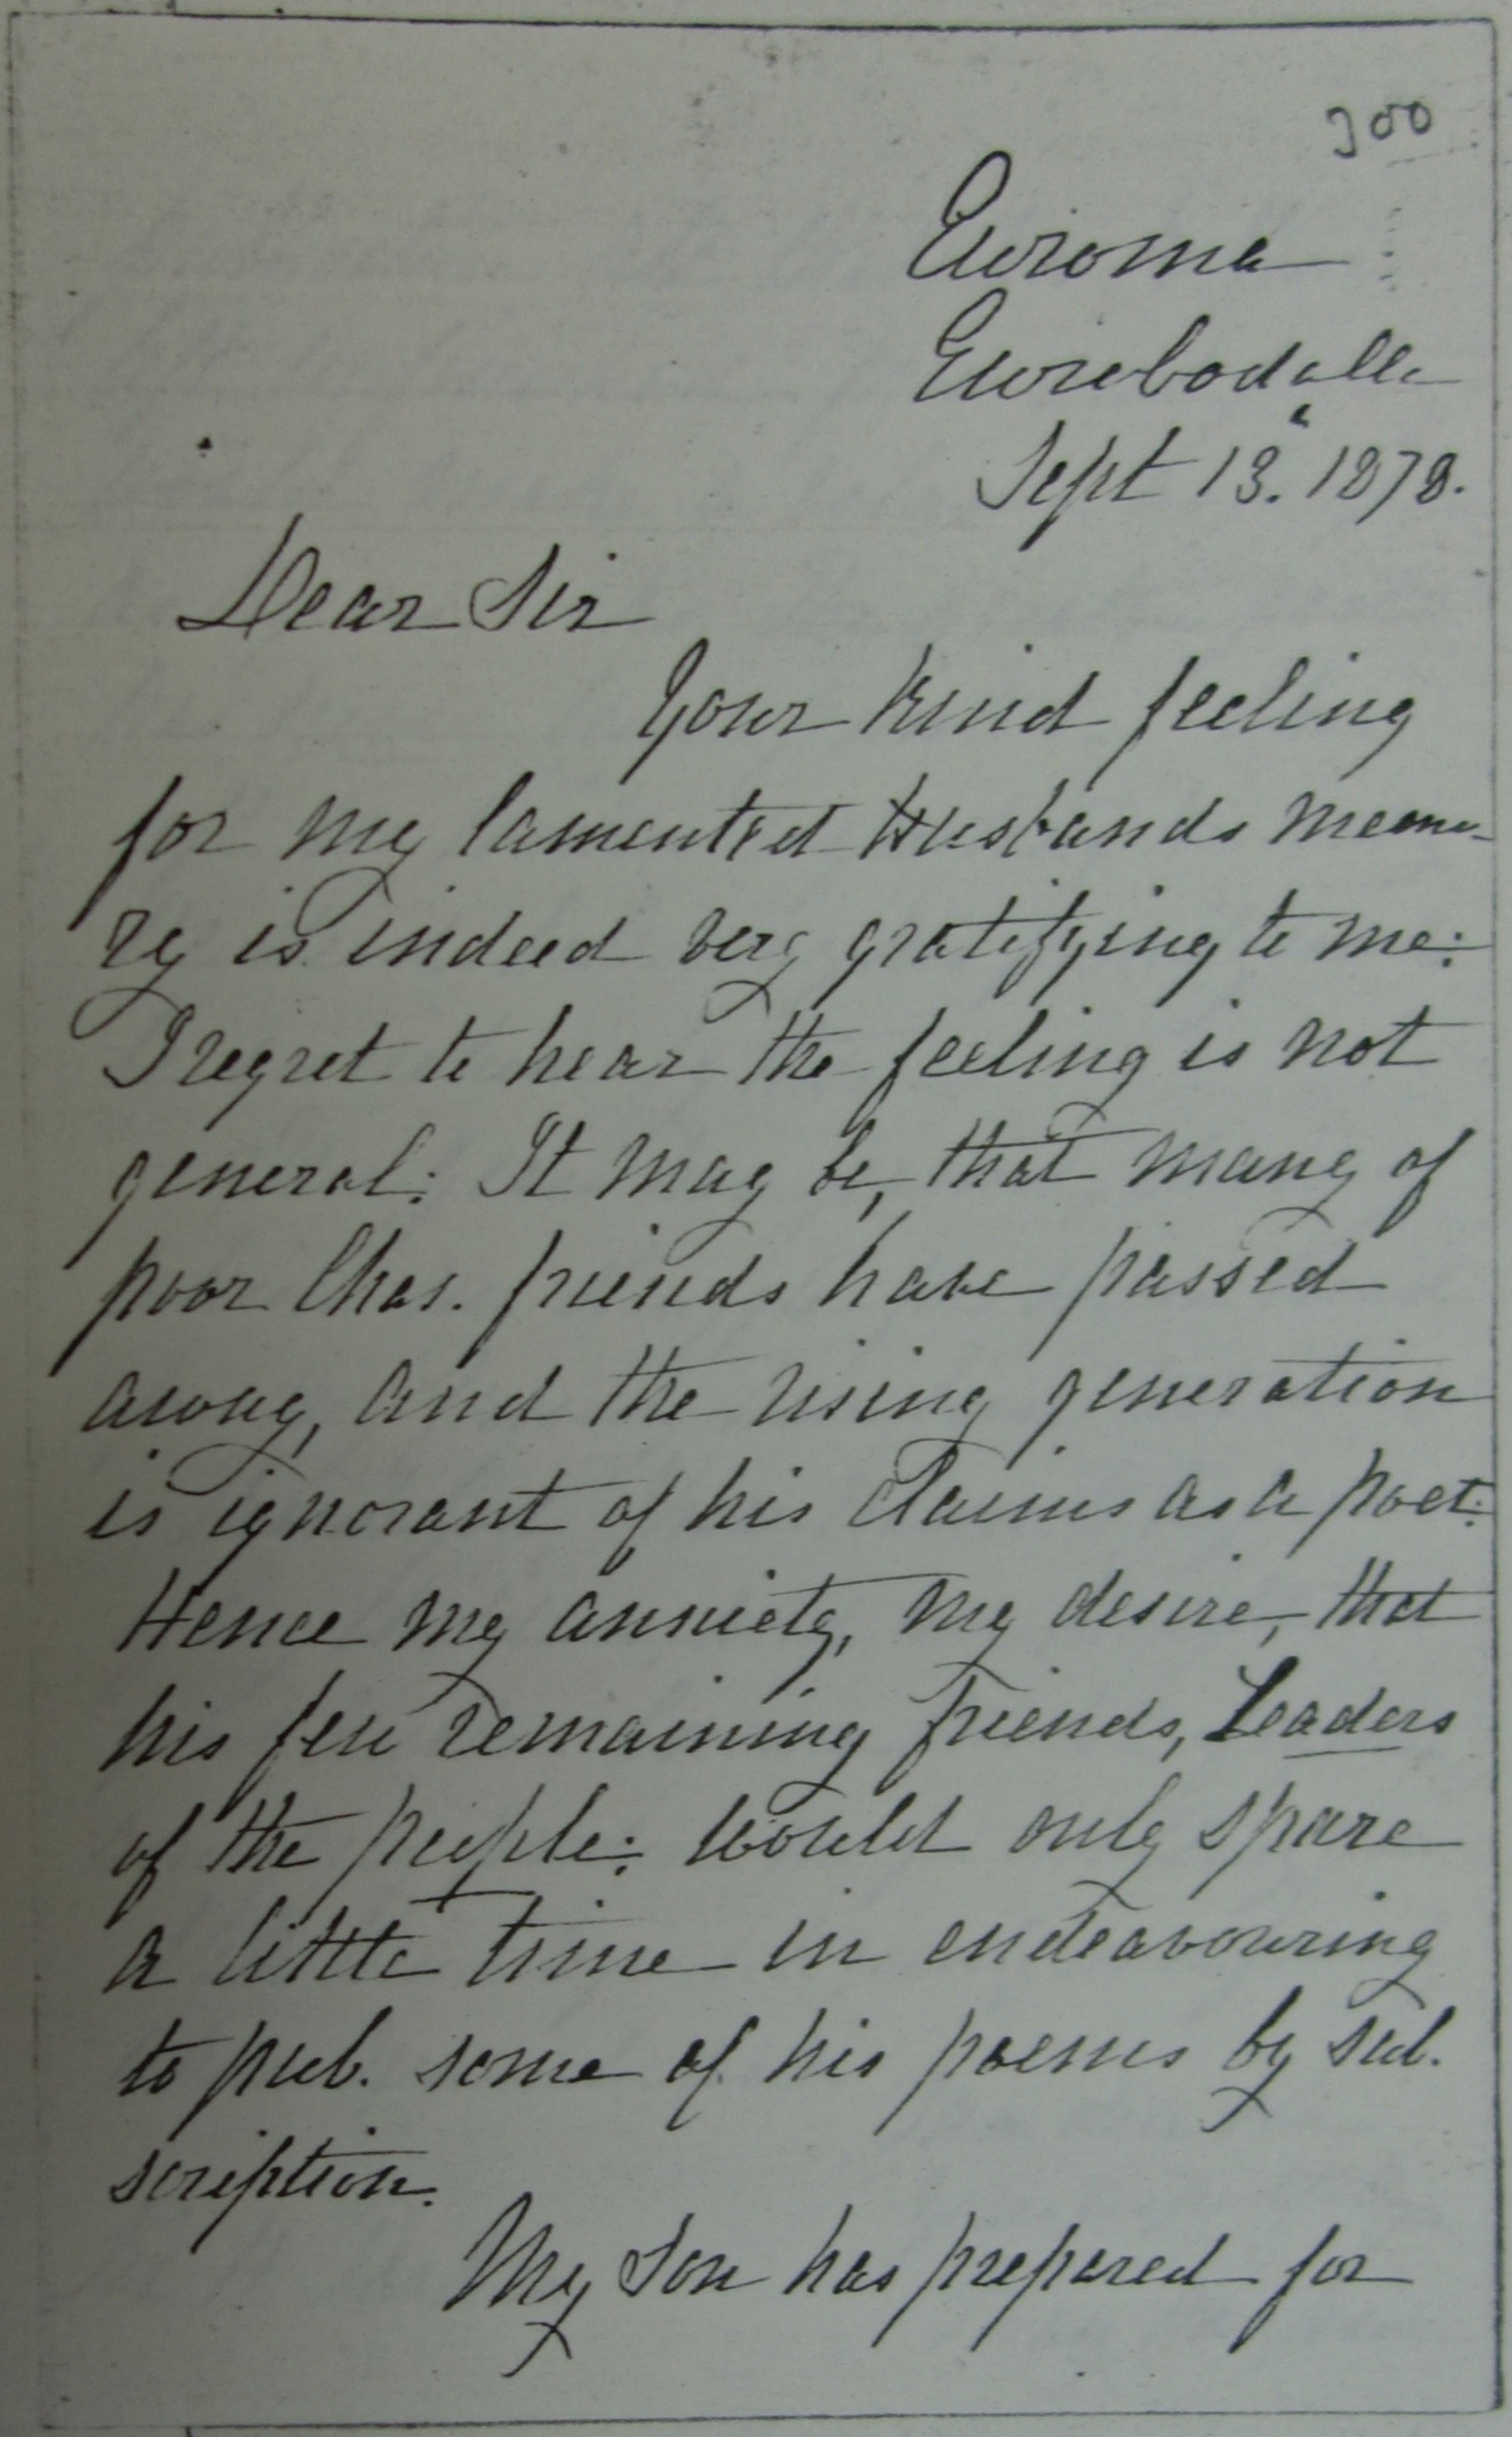 300
Euroma
Eurobodalla
Sept 13. 1878.
Dear Sir
Your kind feeling
for my lamented Husbands memo-
ry is indeed very gratifying to me:
I regret to hear the feeling is not
general: It may be, that many of
poor Chas. friends have passed
away, and the rising generation
is ignorant of his claims as a poet:
Hence my anxiety, my desire, that
his few remaining friends, Leaders
of the people: would only spare
a little time in endeavouring
to pub. some of his poems by sub.
scription.
My Son has prepared for